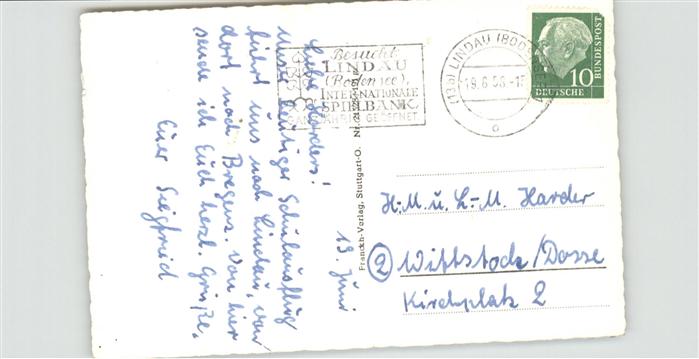 Liebe Harders!
unser heutiger Schulausflug
führt uns nach Lindau, von
dort nach Bregenz. Von hier
sende ich Euch herzl. Grüße.
Euer Siegfried
13. Juni
Besucht
LINDAU
(Bodensee),
INTERNATIONALE
SPIELBANK
GANZJÄHRIG GEÖFFNET
(13b) LINDAU (BODENSEE)
19.6.58.-17
DEUTSCHE
BUNDESPOST
10
Franckh-Verlag, Stuttgart-O. Nr.
H.-M. u. L.-M. Harder
2 Wittstock/Dosse
Kirchplatz 2